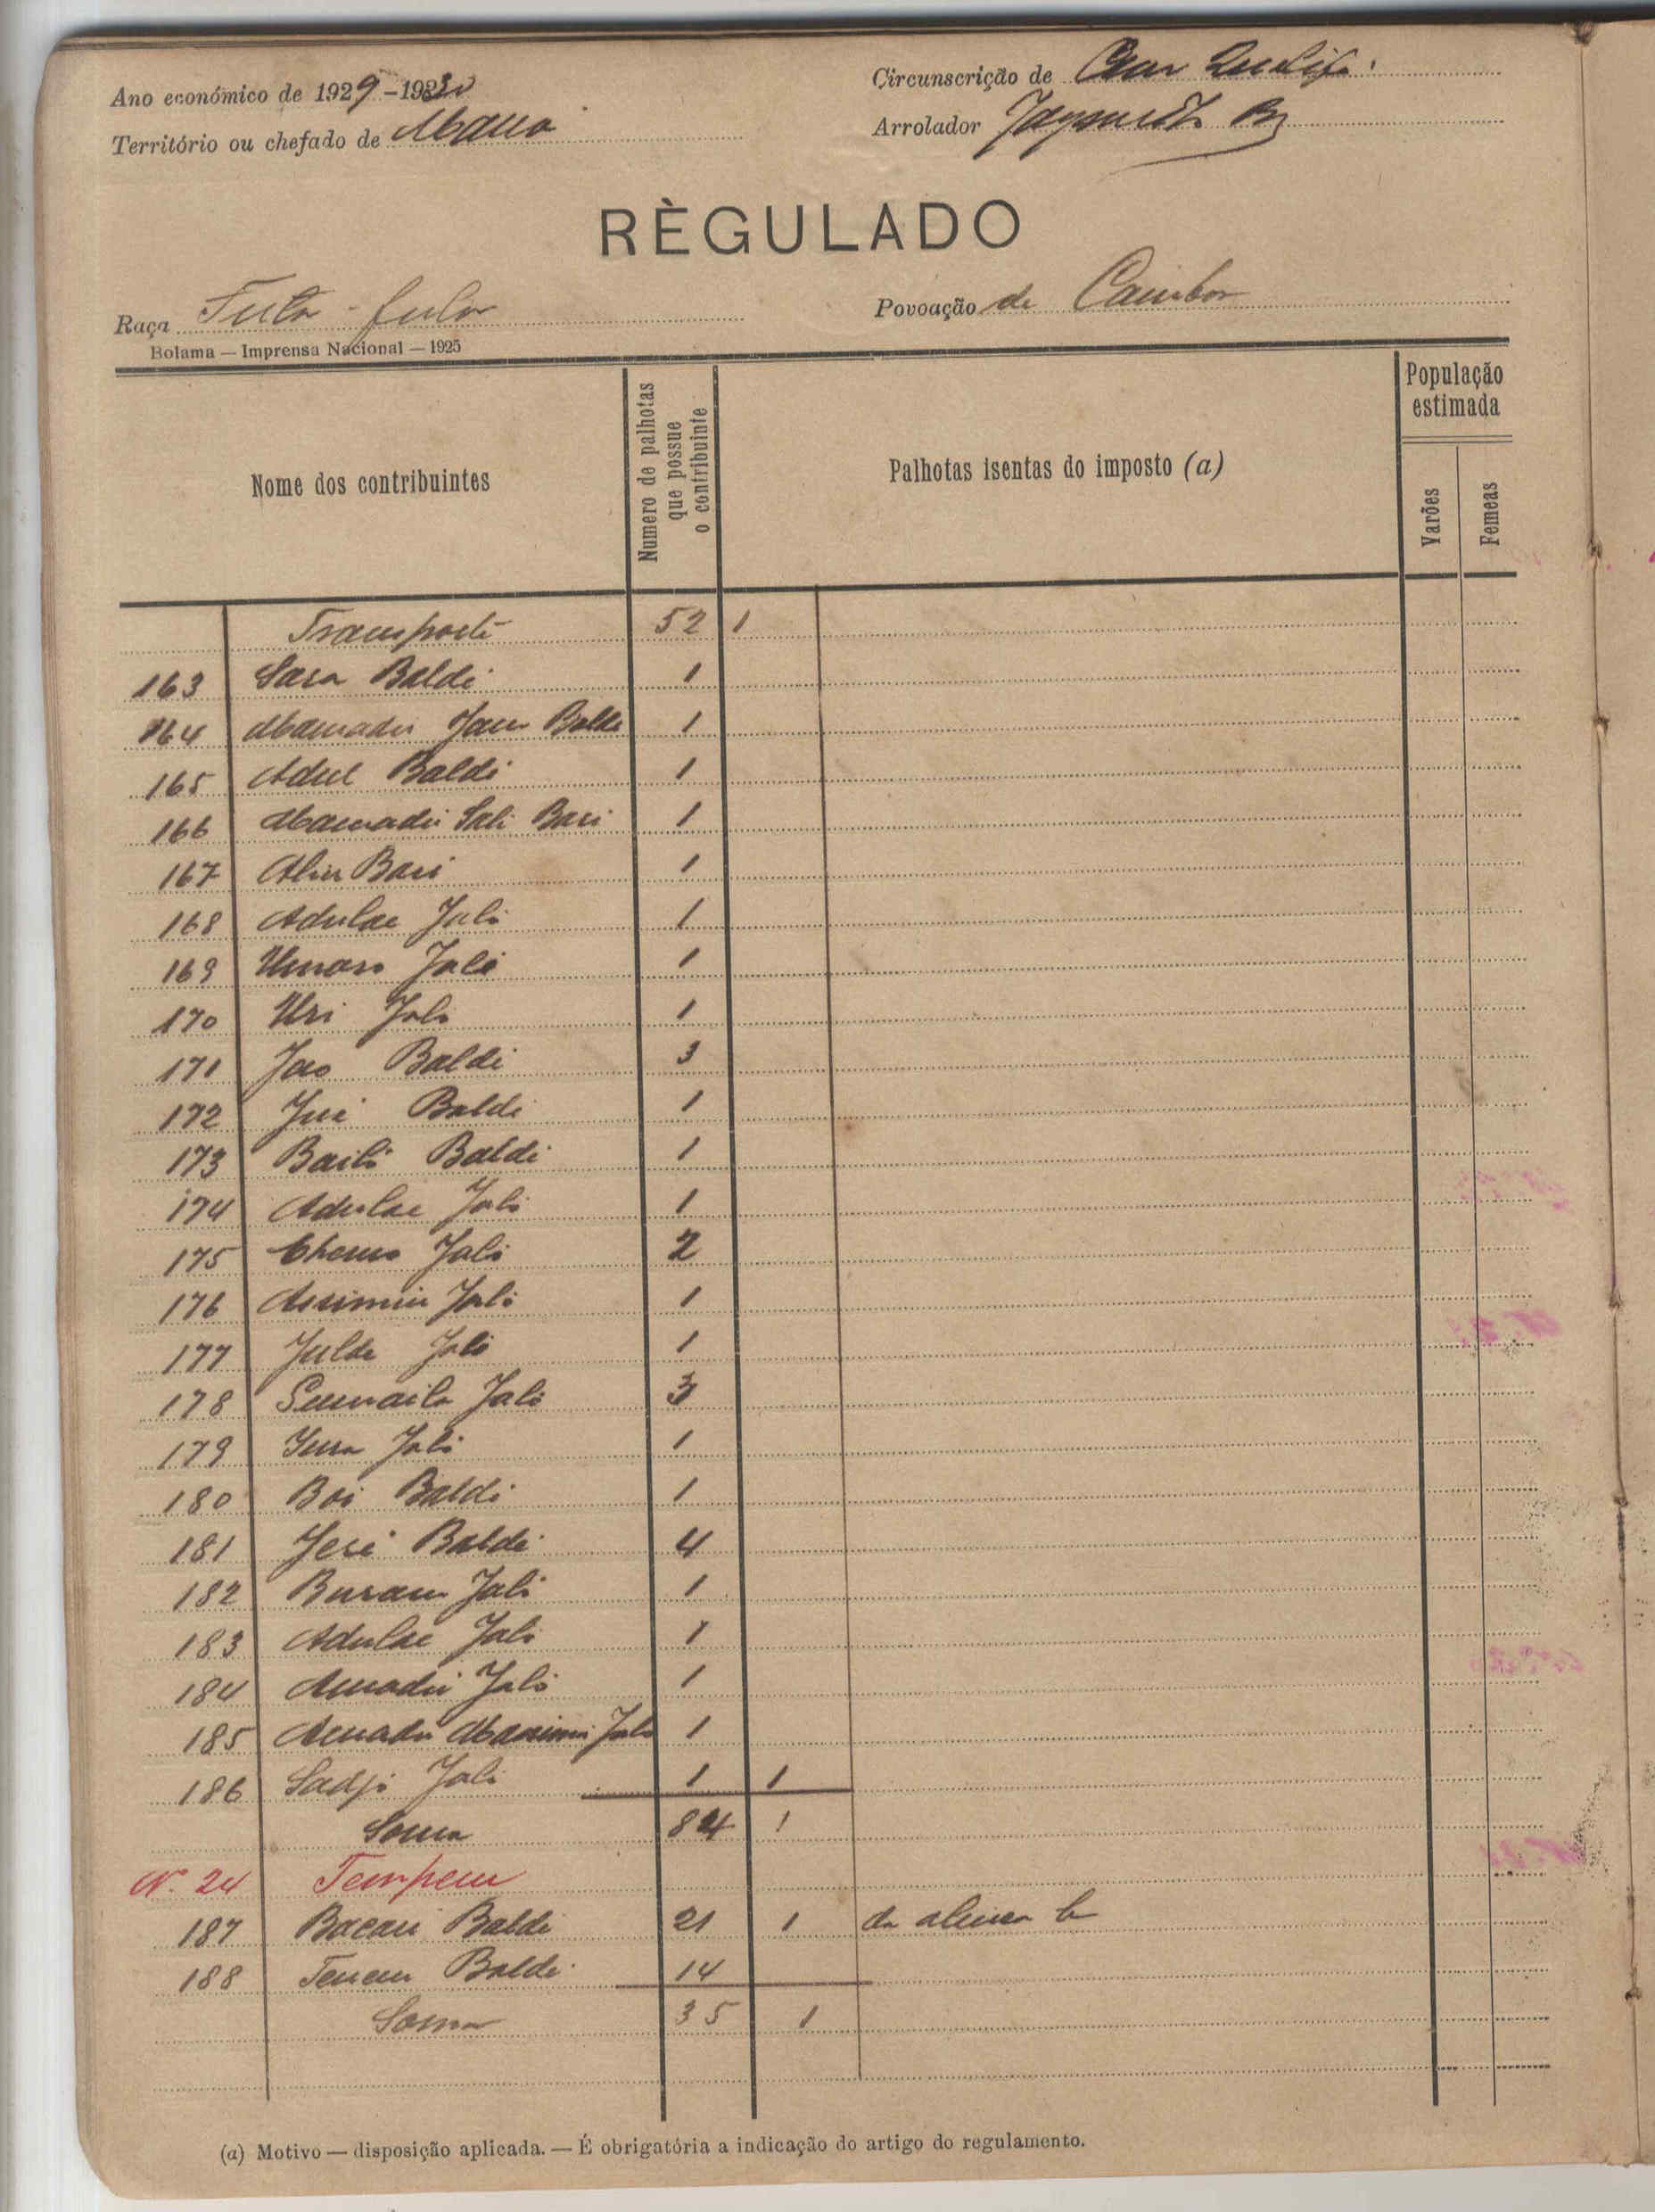 Ano económico de 1929-1930
Circunscrição de
Território ou chefado de
Arrolador
RÈGULADO
Raça Futa-fula
Povoação de Cambor
Bolama — Imprensa Nacional — 1925
Nome dos contribuintes
Numero de palhotas que possue o contribuinte
Palhotas isentas do imposto (a)
População estimada
Varões
Femeas
Transporte 52 1
163 Sara Baldé 1
164 Mamadu Baldé 1
165 Adul Baldé 1
166 Mamadú Sali Bari 1
167 Aliu Bari 1
168 Adulae Jaló 1
169 Umaro Jaló 1
170 Uri Jaló 1
171 Jao Baldé 3
172 Baldé 1
173 Bailó Baldé 1
174 Adulae Jaló 1
175 Cherno Jaló 2
176 Jaló 1
177 Julde Jaló 1
178 Sumaila Jaló 3
179 Jaló 1
180 Boi Baldé 1
181 Baldé 4
182 Buram Jaló 1
183 Adulae Jaló 1
184 Amadú Jaló 1
185 Amadú Jaló 1
186 Sadjo Jaló 1 1
Soma 84 1
Nº 24 Tempeu
187 Bacari Baldé 21 1 da alinea b
188 Baldé 14
Soma 35 1
(a) Motivo — disposição aplicada. — É obrigatória a indicação do artigo do regulamento.